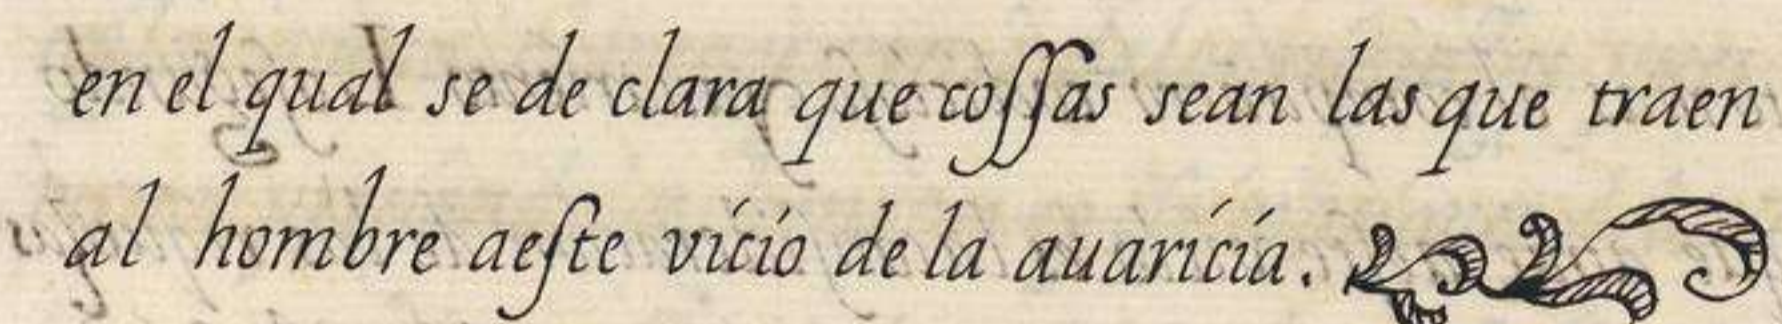 en el qual se de clara que coſſas sean las que traen
al hombre aeſte vicio de la auaricia.